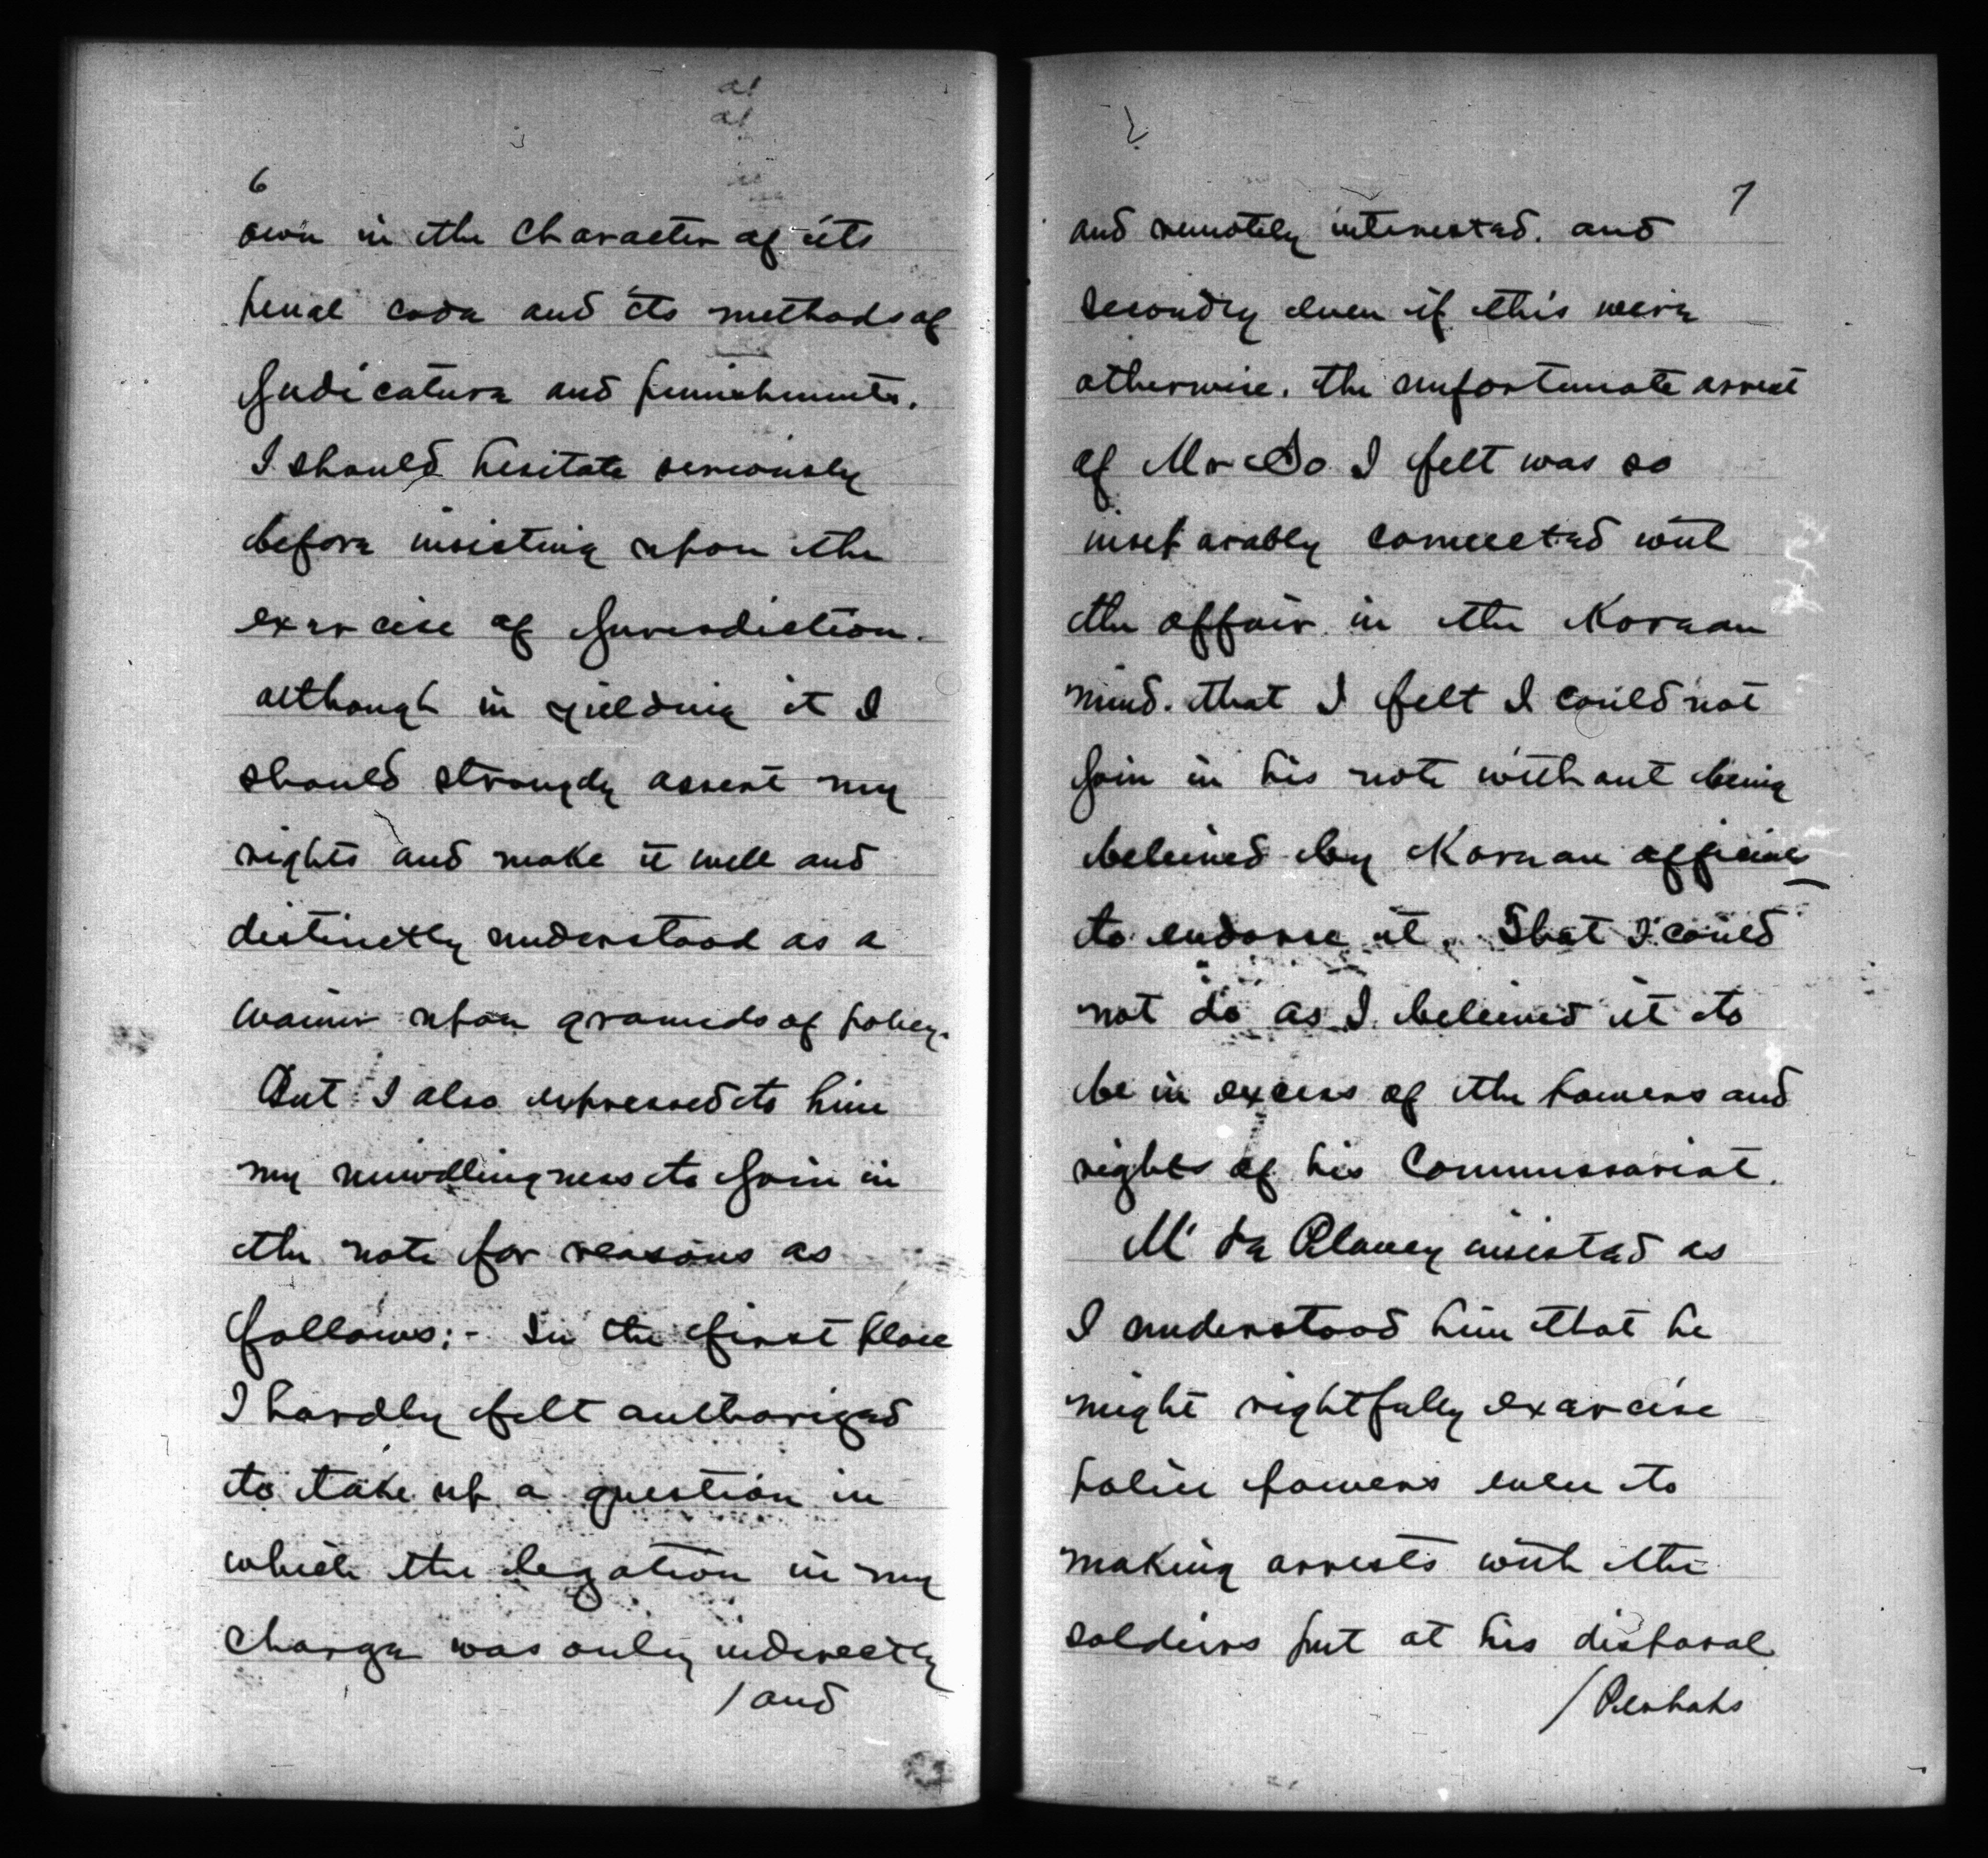 6
own in the character of its
penal code and its methods of
Judicature and punishments.
I should hesitate seriously
before insisting upon the
exercise of Jurisdiction.
although in yielding it I
should strongly assert my
rights and make it well and
distinctly understood as a
waiver upon grounds of policy.
But I also expressed to him
my unwillingness to Join in
the note for reasons as
follows;- In the first place
I hardly felt authorized
to take up a question in
which the legation in my
charge was only indirectly
/and
7
and remotely interested. and
secondly even if this were
otherwise. the unfortunate arrest
of Mr So I felt was so
inseparably connected with
the affair in the Korean
mind. that I felt I could not
Join in his note without being
beleived by Korean officials
to endorse it. That I could
not do as I beleived it to
be in excess of the powers and
rights of his Commissariat.
Mr de Plancy insisted as
I understood him that he
might rightfully exercise
police powers even to
making arrests with the
soldiers put at his disposal
/Perhaps